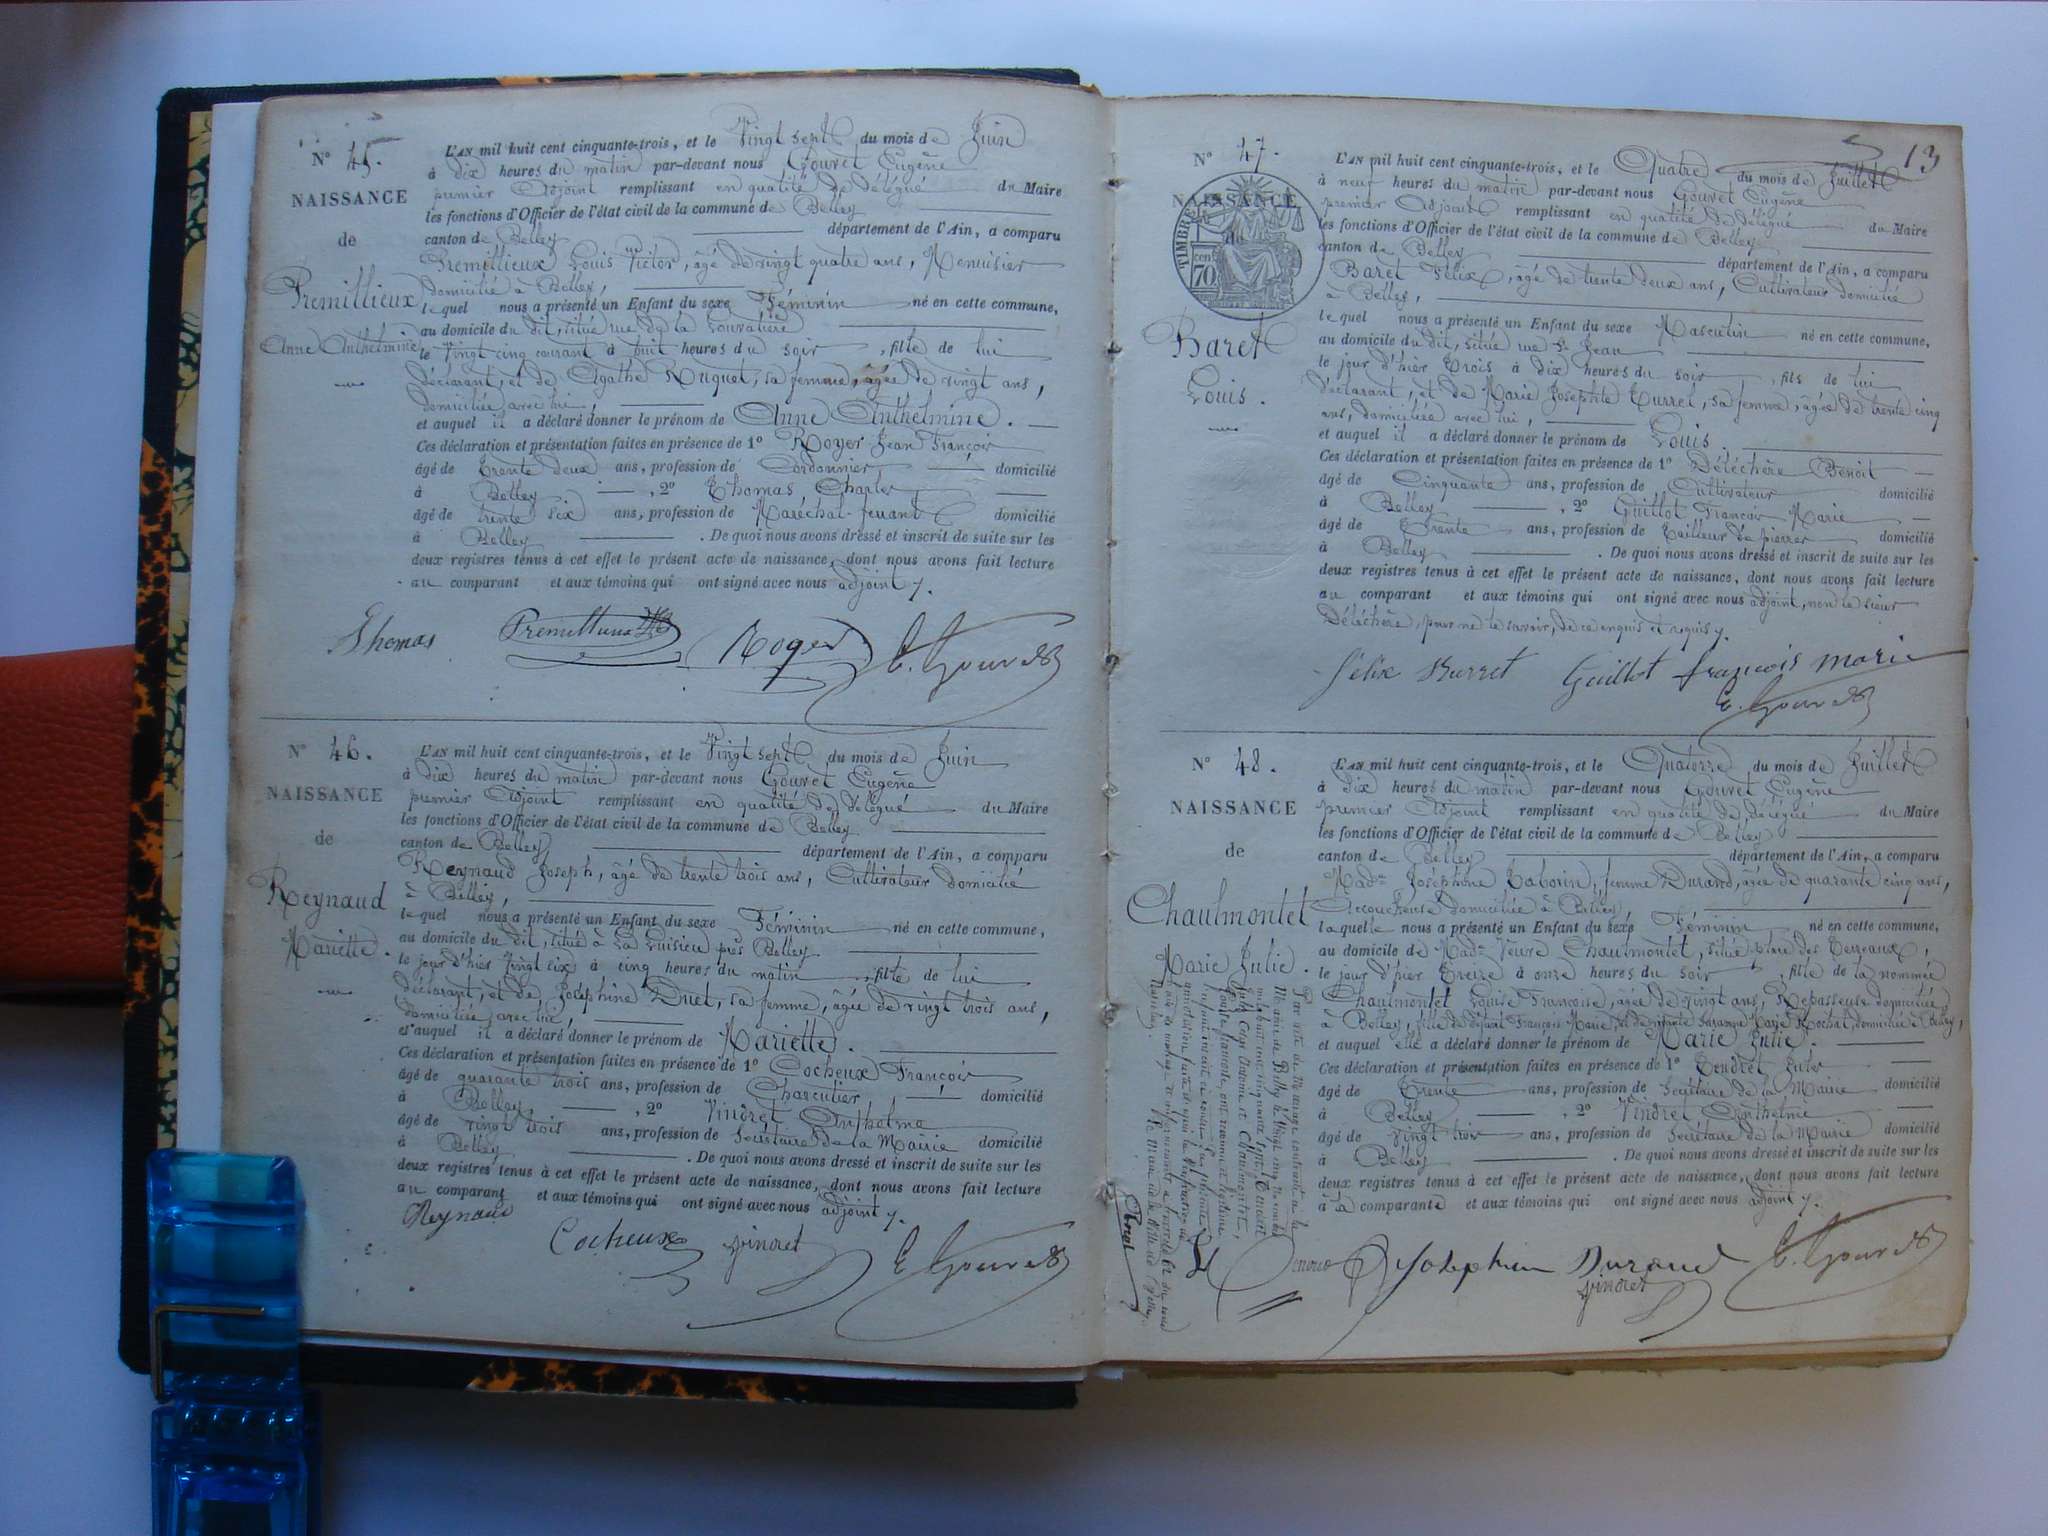 N° 45.
NAISSANCE
de
Premillieux
Anne Anthelmine
L'AN mil huit cent cinquante-trois, et le Vingt sept du mois de Juin
à dix heures du matin par-devant nous Gouvet Eugène
premier Adjoint remplissant en qualité de délégué du Maire
les fonctions d'Officier de l'état civil de la commune de Belley
canton de Belley département de l'Ain, a comparu
Premillieux Louis Victor, âgé de vingt quatre ans, Menuisier
domicilié à Belley,
lequel nous a présenté un Enfant du sexe Féminin né en cette commune,
au domicile du dit, situé rue de la
le Vingt cinq courant à huit heures du soir, fille de lui
déclarant, et de Agathe Ruguet, sa femme, âgée de vingt ans,
domiciliée avec lui,
et auquel il a déclaré donner le prénom de Anne Anthelmine.
Ces déclaration et présentation faites en présence de 1° Royer Jean François
âgé de trente deux ans, profession de Cordonnier domicilié
à Belley, 2° Thomas Charles
âgé de trente six ans, profession de Maréchal-ferrant domicilié
à Belley. De quoi nous avons dressé et inscrit de suite sur les
deux registres tenus à cet effet le présent acte de naissance, dont nous avons fait lecture
au comparant et aux témoins qui ont signé avec nous adjoint y.
Thomas Premillieux Royer E. Gouvet
N° 46.
NAISSANCE
de
Reynaud
Mariette.
L'AN mil huit cent cinquante-trois, et le Vingt sept du mois de Juin
à dix heures du matin par-devant nous Gouvet Eugène
premier Adjoint remplissant en qualité de délégué du Maire
les fonctions d'Officier de l'état civil de la commune de Belley
canton de Belley département de l'Ain, a comparu
Reynaud Joseph, âgé de trente trois ans, Cultivateur domicilié
à Belley,
lequel nous a présenté un Enfant du sexe Féminin né en cette commune,
au domicile du dit, situé à près Belley
le jour d'hier Vingt six à cinq heures du matin, fille de lui
déclarant, et de Joséphine Duet, sa femme, âgée de vingt trois ans,
domiciliée avec lui,
et auquel il a déclaré donner le prénom de Mariette.
Ces déclaration et présentation faites en présence de 1° Cocheux François
âgé de quarante trois ans, profession de Charcutier domicilié
à Belley, 2° Vindret Anthelme
âgé de vingt trois ans, profession de Secrétaire de la Mairie domicilié
à Belley. De quoi nous avons dressé et inscrit de suite sur les
deux registres tenus à cet effet le présent acte de naissance, dont nous avons fait lecture
au comparant et aux témoins qui ont signé avec nous adjoint y.
Reynaud Cocheux Vindret E. Gouvet
13
N° 47.
NAISSANCE
de
TIMBRE
70 cent
Baret
Louis.
L'AN mil huit cent cinquante-trois, et le Quatre du mois de Juillet
à neuf heures du matin par-devant nous Gouvet Eugène
premier Adjoint remplissant en qualité de délégué du Maire
les fonctions d'Officier de l'état civil de la commune de Belley
canton de Belley département de l'Ain, a comparu
Baret Félix, âgé de trente deux ans, Cultivateur domicilié
à Belley,
lequel nous a présenté un Enfant du sexe Masculin né en cette commune,
au domicile du dit, situé rue St Jean
le jour d'hier Trois à dix heures du soir, fils de lui
déclarant, et de Marie Josephte Turrel, sa femme, âgée de trente cinq
ans, domiciliée avec lui,
et auquel il a déclaré donner le prénom de Louis.
Ces déclaration et présentation faites en présence de 1° Déléchère Benoit
âgé de Cinquante ans, profession de Cultivateur domicilié
à Belley, 2° Guillot François Marie
âgé de Trente ans, profession de Tailleur de pierres domicilié
à Belley. De quoi nous avons dressé et inscrit de suite sur les
deux registres tenus à cet effet le présent acte de naissance, dont nous avons fait lecture
au comparant et aux témoins qui ont signé avec nous adjoint, non le sieur
Déléchère, pour ne le savoir, de ce enquis et requis y.
félix Barret Guillot françois marie
E. Gouvet
N° 48.
NAISSANCE
de
Chaulmontet
Marie Julie.
L'AN mil huit cent cinquante-trois, et le Quatorze du mois de Juillet
à dix heures du matin par-devant nous Gouvet Eugène
premier Adjoint remplissant en qualité de délégué du Maire
les fonctions d'Officier de l'état civil de la commune de Belley
canton de Belley département de l'Ain, a comparu
Made Joséphine Taborin, femme Durand, âgée de quarante cinq ans,
Accoucheuse domiciliée à Belley,
laquelle nous a présenté un Enfant du sexe Féminin né en cette commune,
au domicile de Made Veuve Chaulmontet, situé place des Terreaux,
le jour d'hier Treize à onze heures du soir, fille de la nommée
Chaulmontet Louise Françoise, âgée de vingt ans, Repasseuse domiciliée
à Belley, fille de défunt François Marie, et de vivante Suzanne Marie Rochat, domiciliée à Belley,
et auquel elle a déclaré donner le prénom de Marie Julie.
Ces déclaration et présentation faites en présence de 1° Tendret Jules
âgé de Trente ans, profession de Secrétaire de la Mairie domicilié
à Belley, 2° Vindret Anthelme
âgé de vingt trois ans, profession de Secrétaire de la Mairie domicilié
à Belley. De quoi nous avons dressé et inscrit de suite sur les
deux registres tenus à cet effet le présent acte de naissance, dont nous avons fait lecture
à la comparante et aux témoins qui ont signé avec nous adjoint y.
Par acte de Mariage contracté à la
Mairie de Belley le Vingt cinq
mil huit cent cinquante sept,
et Chaulmontet
Louise françoise, ont reconnu et légitimé
Josephine Durand Vindret E. Gouvet